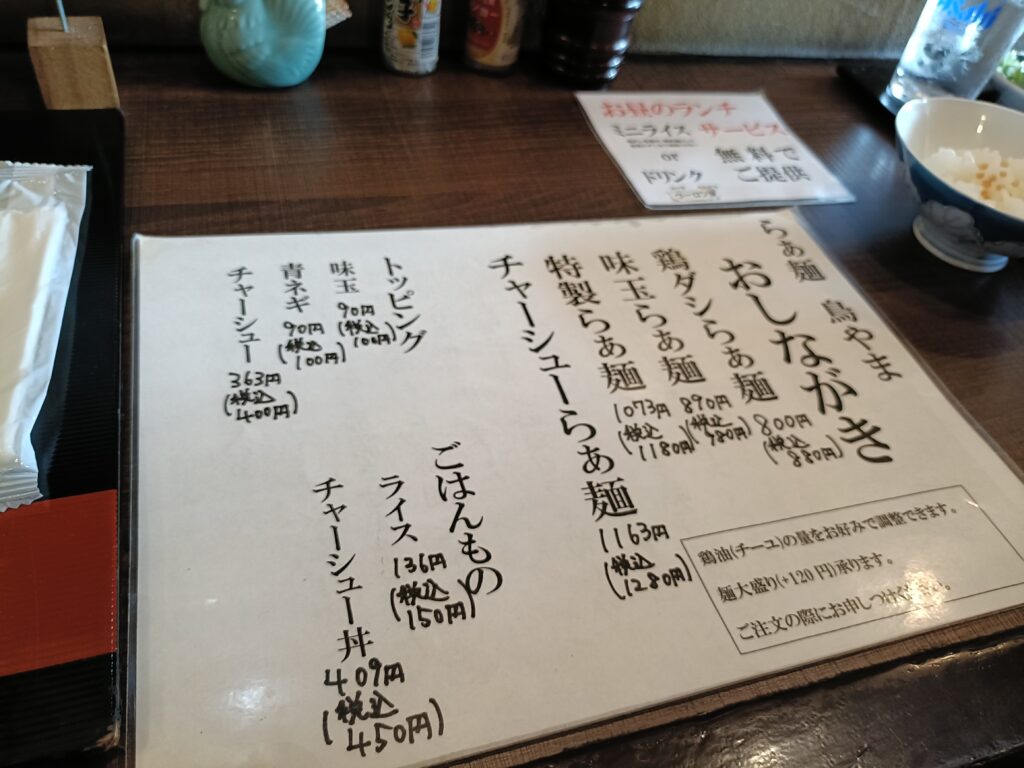 らぁ麺　鳥やま
おしながき
鶏ダシらぁ麺 800円
(税込 880円)
味玉らぁ麺 890円
(税込 980円)
特製らぁ麺 1073円
(税込 1180円)
チャーシューらぁ麺 1163円
(税込 1280円)
トッピング
味玉 90円
(税込 100円)
青ネギ 90円
(税込 100円)
チャーシュー 363円
(税込 400円)
ごはんもの
ライス 136円
(税込 150円)
チャーシュー丼 409円
(税込 450円)
鶏油(チーユ)の量をお好みで調整できます。
麺大盛り(+120円)承ります。
ご注文の際にお申しつけください。
お昼のランチ
ミニライス サービス
or 無料で
ドリンク ご提供
ウーロン茶
Asahi